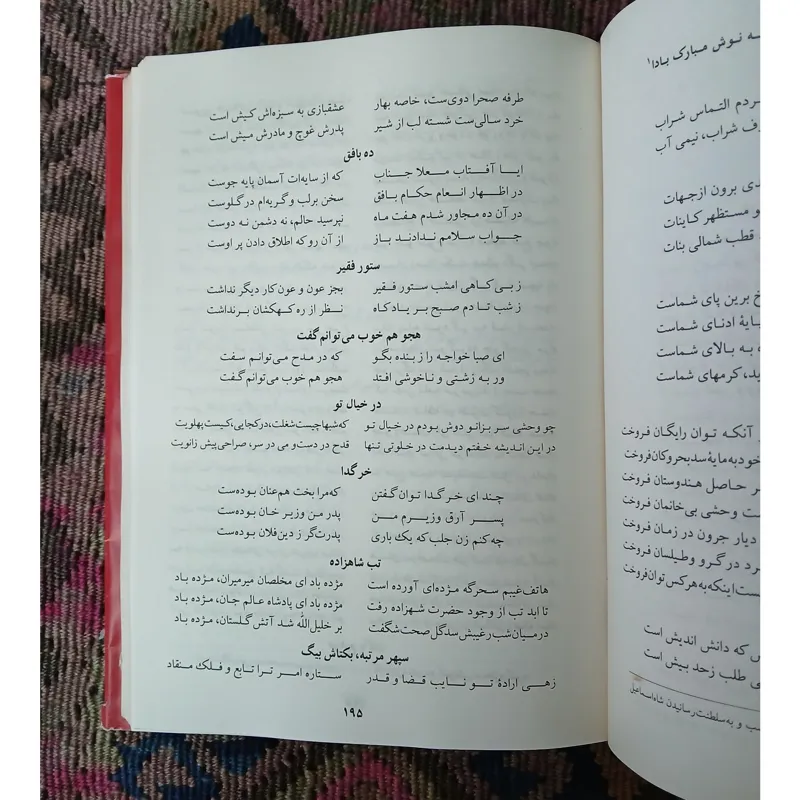 طرفه صحرا دوی‌ست، خاصه بهار عشقبازی به سبزه‌اش کیش است
خرد سالی‌ست شسته لب از شیر پدرش غوچ و مادرش میش است
ده بافق
ایا آفتاب معلا جناب که از سایه‌ات آسمان پایه جوست
در اظهار انعام حکام بافق سخن برلب و گریه‌ام در گلوست
در آن ده مجاور شدم هفت ماه نپرسید حالم، نه دشمن نه دوست
جواب سلامم ندادند باز از آن رو که اطلاق دادن بر اوست
ستور فقیر
ز بی کاهی امشب ستور فقیر بجز عون و عون کار دیگر نداشت
ز شب تا دم صبح بر یاد کاه نظر از ره کهکشان برنداشت
هجو هم خوب می‌توانم گفت
ای صبا خواجه را ز بنده بگو که در مدح می‌توانم سفت
ور به زشتی و ناخوشی افتد هجو هم خوب می‌توانم گفت
در خیال تو
چو وحشی سر بزانو دوش بودم در خیال تو که‌شبهاچیست‌شغلت،درکجایی،کیست‌پهلویت
در این اندیشه خفتم دیدمت در خلوتی تنها قدح در دست‌و می در سر، صراحی‌پیش زانویت
خر گدا
چند ای خر گدا توان گفتن که‌مرا بخت هم‌عنان بوده‌ست
پسر آرق وزیرم من پدر من وزیر خان بوده‌ست
چه کنم زن جلب که یک باری پدرت‌گر ز دین‌فلان بوده‌ست
تب شاهزاده
هاتف غیبم سحرگه مژده‌ای آورده است مژده باد ای مخلصان میرمیران، مژده باد
تا ابد تب از وجود حضرت شهزاده رفت مژده باد ای پادشاه عالم جان، مژده باد
درمیان‌شب‌رغیبش‌سدگل‌صحت‌شگفت بر خلیل‌الله شد آتش گلستان، مژده باد
سپهر مرتبه، بکتاش بیگ
زهی ارادهٔ تو نایب قضا و قدر ستاره امر ترا تابع و فلک منقاد
۱۹۵
نوش مبارک بادا۱
التماس شراب
شراب، نیمی آب
برون ازجهات
و مستظهر کاینات
قطب شمالی بنات
برین پای شماست
ادنای شماست
به بالای شماست
کرمهای شماست
آنکه توان رایگان فروخت
خودبه‌مایهٔ‌سدبحروکان‌فروخت
حاصل هندوستان فروخت
وحشی بی‌خانمان فروخت
دیار جرون در زمان فروخت
در گرو وطیلسان فروخت
اینکه‌به‌هرکس‌توان‌فروخت
که دانش اندیش است
طلب زحد بیش است
و به‌سلطنت‌رسانیدن شاه‌اسماعیل